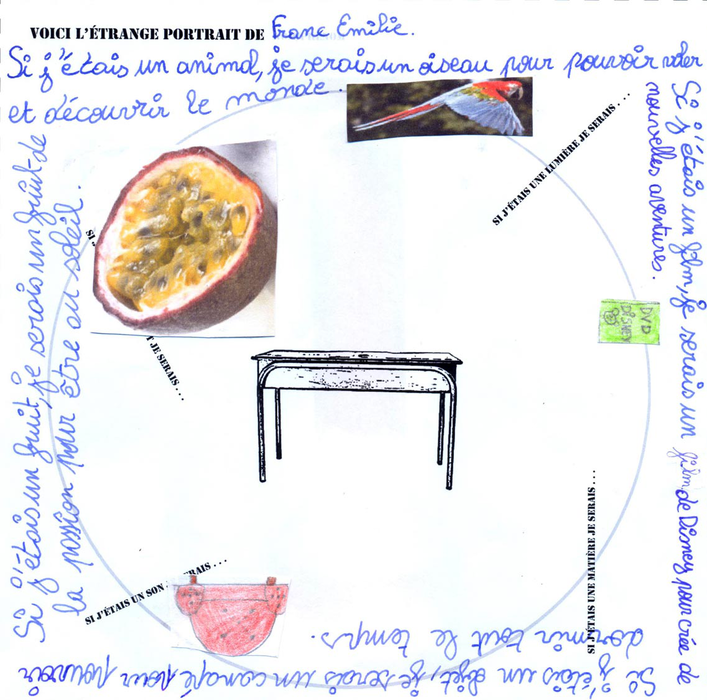 VOICI L'ÉTRANGE PORTRAIT DE Franc Emilie.
Si j'étais un animal, je serais un oiseau pour pouvoir voler
et découvrir le monde.
SI J'ÉTAIS UNE LUMIÈRE JE SERAIS . . .
Si j'étais un film, je serais un film de Disney pour crée de
nouvelles aventures.
DVD
DiSNEY
SI J'ÉTAIS UNE MATIÈRE JE SERAIS . . .
Si j'étais un objet, je serais un canapé pour pouvoir
dormir tout le temps.
SI J'ÉTAIS UN SON RAIS . . .
Si j'étais un fruit, je serais un fruit de
la passion pour être au soleil.
SI J
T JE SERAIS . . .